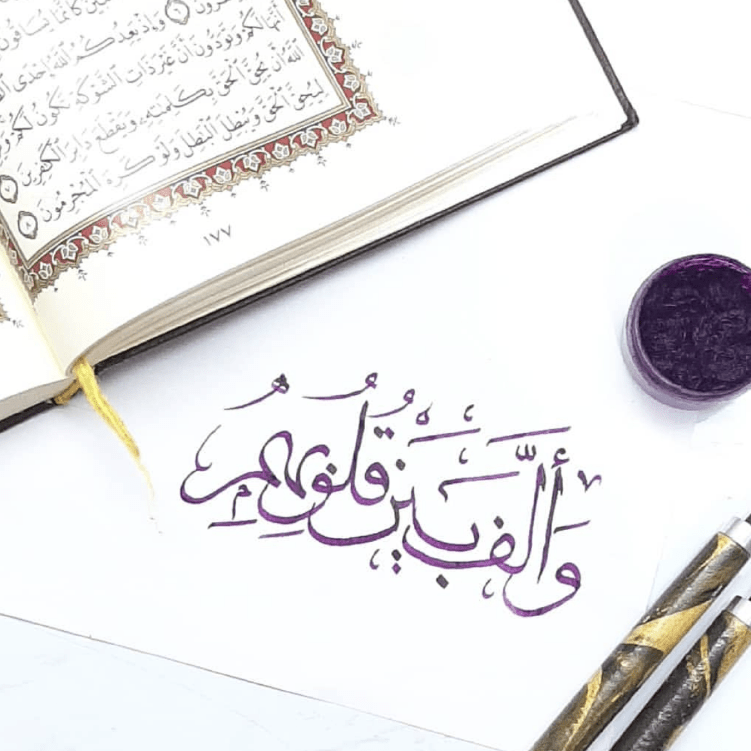 كَأَنَّمَا يُسَاقُونَ
وَإِذْ يَعِدُكُمُ اللَّهُ إِحْدَى
أَنَّهَا لَكُمْ وَتَوَدُّونَ أَنَّ غَيْرَ ذَاتِ الشَّوْكَةِ تَكُونُ لَكُمْ
اللَّهُ أَنْ يُحِقَّ الْحَقَّ بِكَلِمَاتِهِ وَيَقْطَعَ دَابِرَ الْكَافِرِينَ
لِيُحِقَّ الْحَقَّ وَيُبْطِلَ الْبَاطِلَ وَلَوْ كَرِهَ الْمُجْرِمُونَ
١٧٧
وَأَلَّفَ بَيْنَ قُلُوبِهِمْ